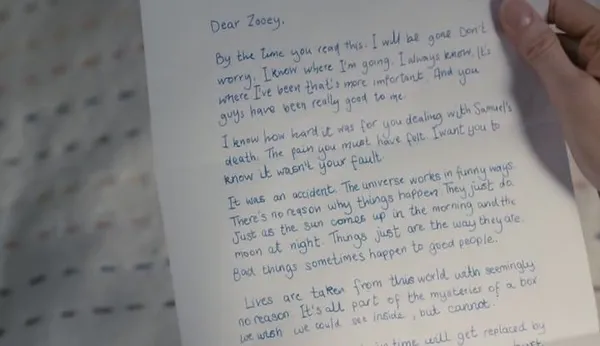 Dear Zooey,
By the time you read this. I will be gone Don't
worry. I know where I'm going. I always know. It's
where I've been that's more important. And you
guys have been really good to me.
I know how hard it was for you dealing with Samuel's
death. The pain you must have felt. I want you to
know it wasn't your fault.
It was an accident. The universe works in funny ways.
There's no reason why things happen. They just do.
Just as the sun comes up in the morning and the
moon at night. Things just are the way they are.
Bad things sometimes happen to good people.
Lives are taken from this world with seemingly
no reason. It's all part of the mysteries of a box
we wish we could see inside, but cannot.
time will get replaced by